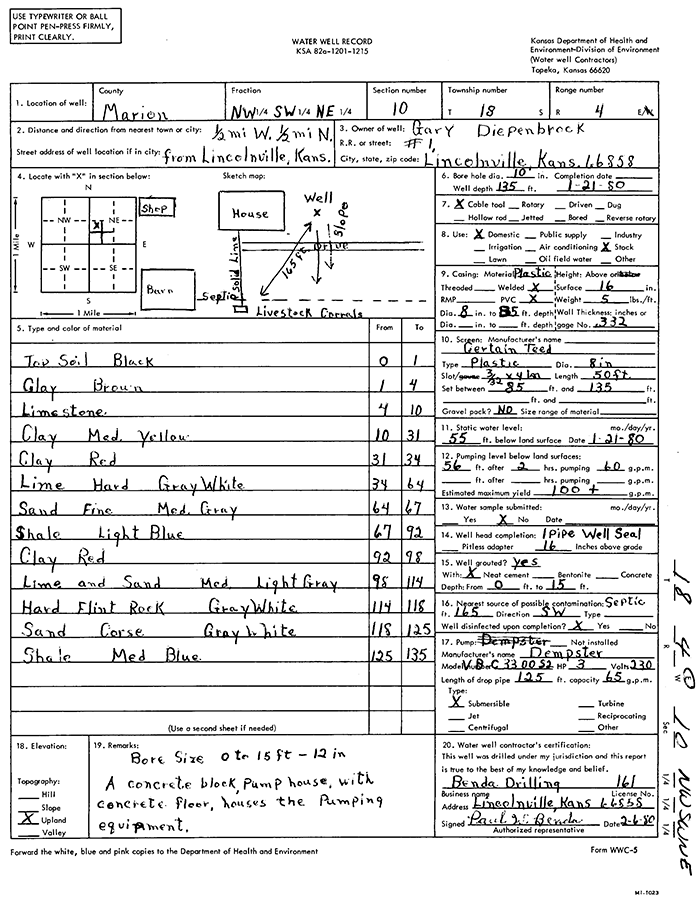 USE TYPEWRITER OR BALL
POINT PEN-PRESS FIRMLY,
PRINT CLEARLY.
WATER WELL RECORD
KSA 82a-1201-1215
Kansas Department of Health and
Environment-Division of Environment
(Water well Contractors)
Topeka, Kansas 66620
1. Location of well:
County
Marion
Fraction
NW 1/4 SW 1/4 NE 1/4
Section number
10
Township number
T 18 S
Range number
R 4 E/W
2. Distance and direction from nearest town or city: 1/2 mi W. 1/2 mi N.
Street address of well location if in city: from Lincolnville, Kans.
3. Owner of well: Gary Diepenbrock
R.R. or street: # 1,
City, state, zip code: Lincolnville, Kans. 66858
4. Locate with "X" in section below:
N
NW NE
X
W E
SW SE
S
1 Mile
1 Mile
Sketch map:
Shop
House
Well
X
Slope
Drive
165 ft.
Solid Line
Septic
Barn
Livestock Corrals
5. Type and color of material From To
Top Soil Black 0 1
Clay Brown 1 4
Limestone 4 10
Clay Med. Yellow 10 31
Clay Red 31 34
Lime Hard Gray White 34 64
Sand Fine Med. Gray 64 67
Shale Light Blue 67 92
Clay Red 92 98
Lime and Sand Med. Light Gray 98 114
Hard Flint Rock Gray White 114 118
Sand Corse Gray White 118 125
Shale Med Blue 125 135
(Use a second sheet if needed)
6. Bore hole dia. 10 in. Completion date
Well depth 135 ft. 1-21-80
7. X Cable tool Rotary Driven Dug
Hollow rod Jetted Bored Reverse rotary
8. Use: X Domestic Public supply Industry
Irrigation Air conditioning X Stock
Lawn Oil field water Other
9. Casing: Material Plastic Height: Above or
Threaded Welded X Surface 16 in.
RMP PVC X Weight 5 lbs./ft.
Dia. 8 in. to 85 ft. depth Wall Thickness: inches or
Dia. in. to ft. depth gage No. .332
10. Screen: Manufacturer's name
Certain Teed
Type Plastic Dia. 8 in
Slot/gauze 3/32 x 4 in Length 50 ft.
Set between 85 ft. and 135 ft.
ft. and ft.
Gravel pack? No Size range of material
11. Static water level: mo./day/yr.
55 ft. below land surface Date 1-21-80
12. Pumping level below land surfaces:
56 ft. after 2 hrs. pumping 60 g.p.m.
ft. after hrs. pumping g.p.m.
Estimated maximum yield 100 + g.p.m.
13. Water sample submitted: mo./day/yr.
Yes X No Date
14. Well head completion: 1 Pipe Well Seal
Pitless adapter 16 Inches above grade
15. Well grouted? yes
With: X Neat cement Bentonite Concrete
Depth: From 0 ft. to 15 ft.
16. Nearest source of possible contamination: Septic
ft. 165 Direction SW Type
Well disinfected upon completion? X Yes No
17. Pump: Dempster Not installed
Manufacturer's name Dempster
Model number HP 3 Volts 230
Length of drop pipe 125 ft. capacity 65 g.p.m.
Type:
X Submersible Turbine
Jet Reciprocating
Centrifugal Other
18. Elevation:
Topography:
Hill
Slope
X Upland
Valley
19. Remarks:
Bore Size 0 to 15 ft - 12 in
A concrete block, Pump house, with
concrete floor, houses the Pumping
equipment.
20. Water well contractor's certification:
This well was drilled under my jurisdiction and this report
is true to the best of my knowledge and belief.
Benda Drilling 161
Business name License No.
Address Lincolnville, Kans 66858
Signed Paul W. Benda Date 2-6-80
Authorized representative
Forward the white, blue and pink copies to the Department of Health and Environment
Form WWC-5
T 18
R 4 W
Sec 10
1/4 1/4 1/4 NW SW NE
MT-1023